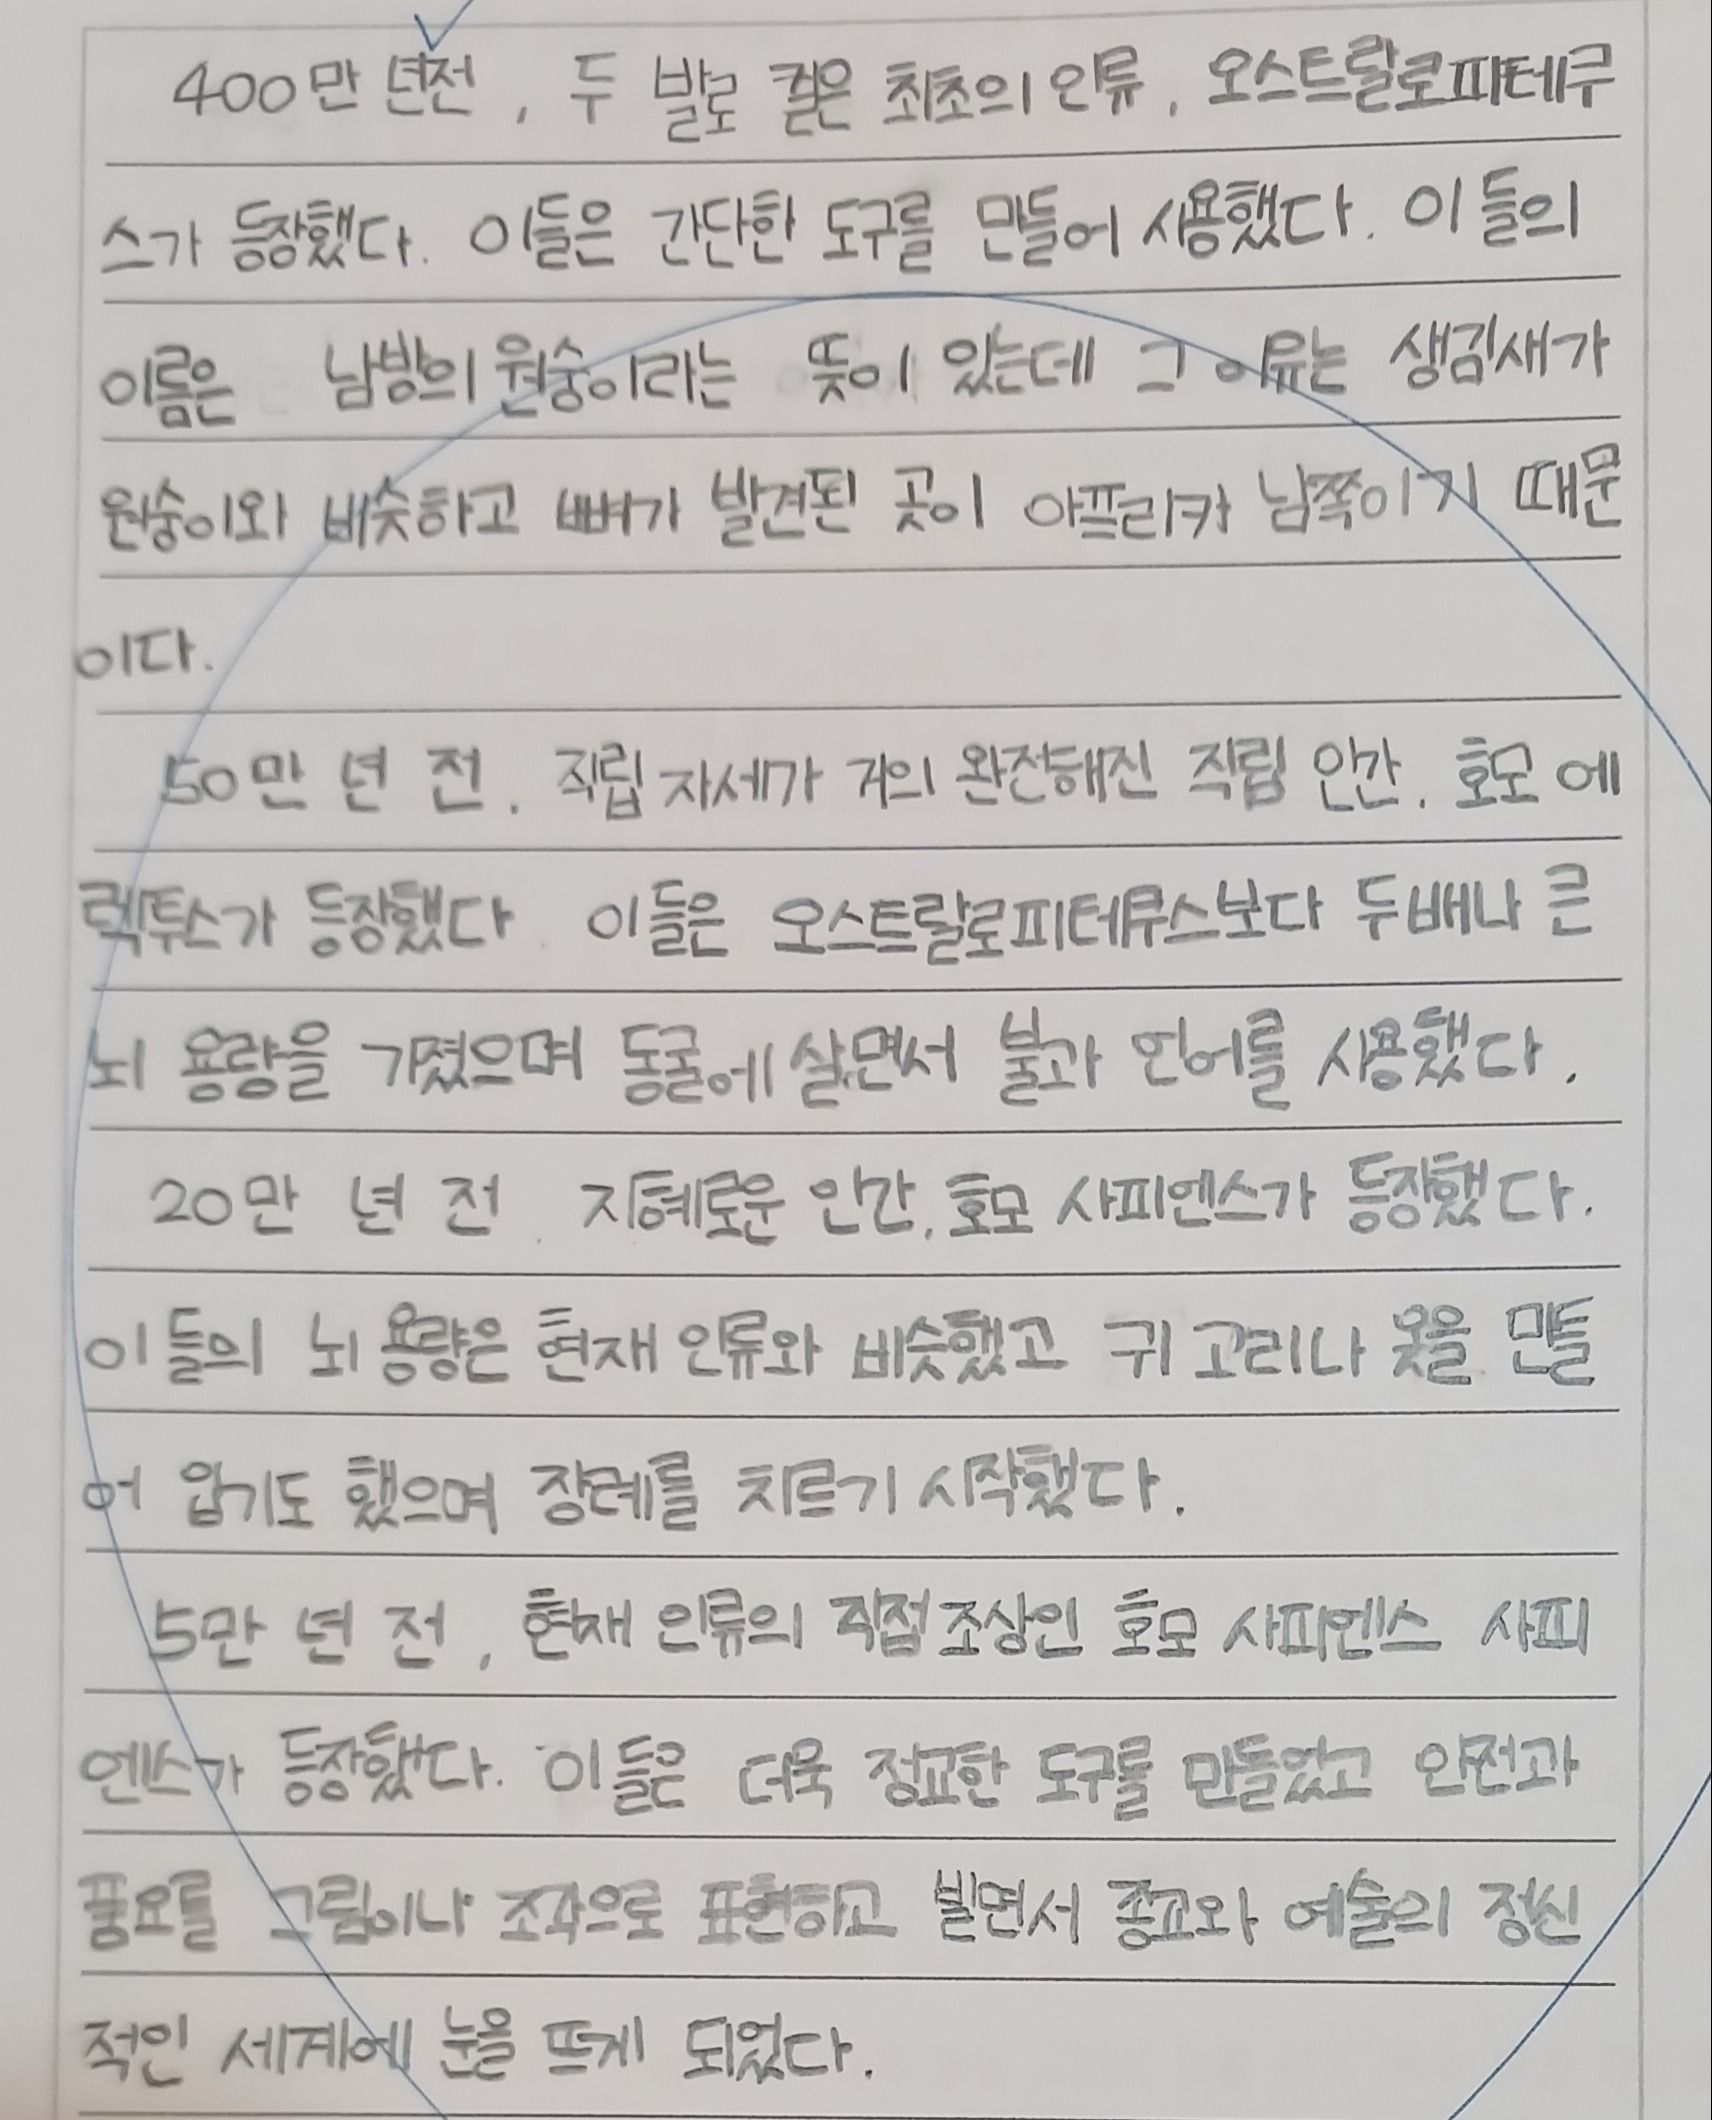 400만 년전, 두 발로 걸은 최초의 인류, 오스트랄로피테쿠
스가 등장했다. 이들은 간단한 도구를 만들어 사용했다. 이들의
이름은 남방의 원숭이라는 뜻이 있는데 그 이유는 생김새가
원숭이와 비슷하고 뼈가 발견된 곳이 아프리카 남쪽이기 때문
이다.
50만 년 전, 직립 자세가 거의 완전해진 직립 인간, 호모 에
렉투스가 등장했다. 이들은 오스트랄로피테쿠스보다 두배나 큰
뇌 용량을 가졌으며 동굴에 살면서 불과 언어를 사용했다.
20만 년 전, 지혜로운 인간, 호모 사피엔스가 등장했다.
이들의 뇌 용량은 현재 인류와 비슷했고 귀고리나 옷을 만들
어 입기도 했으며 장례를 치르기 시작했다.
5만 년 전, 현재 인류의 직접 조상인 호모 사피엔스 사피
엔스가 등장했다. 이들은 더욱 정교한 도구를 만들었고 안전과
풍요를 그림이나 조각으로 표현하고 빌면서 종교와 예술의 정신
적인 세계에 눈을 뜨게 되었다.